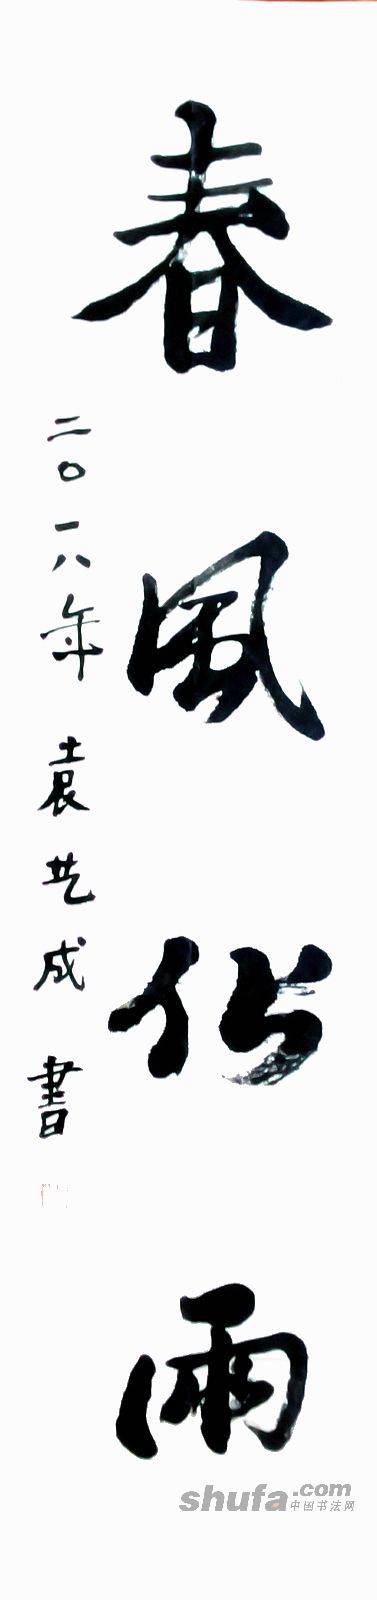 春風化雨
二〇一八年 袁艺成 書
shufa.com
中国书法网